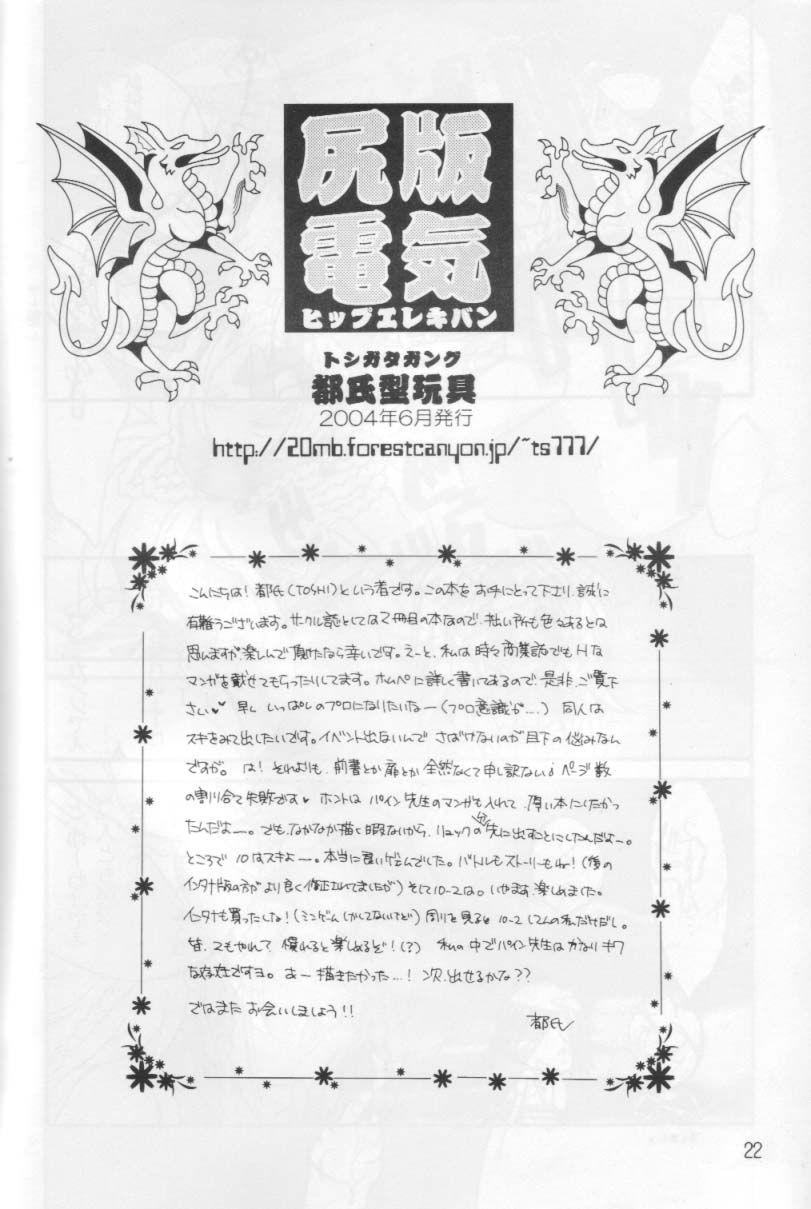 尻版
電気
ヒップエレキバン
トシガタガング
都氏型玩具
2004年6月発行
http://20mb.forestcanyon.jp/~ts777/
こんにちは!都氏(TOSHI)という者です。この本をお手にとって下さり、誠に
有難うございます。サークル誌としては2冊目の本なので、拙い所も色々あるとは
思いますが楽しんで頂けたなら幸いです。えーと、私は時々商業誌でもHな
マンガを載せてもらったりしてます。ホムペに詳しく書いてあるので、是非、ご覧下
さい♥ 早く いっぱしのプロになりたいなー(プロ意識が....) 同人は
スキをみて出したいです。イベント出ないんで さばけないのが目下の悩みなん
ですが。は!それよりも、前書とか扉とか全然なくて申し訳ない ページ数
の割り合て失敗です♥ ホントは パイン先生のマンガも入れて、厚い本にしたかっ
たんだよー。でも、なかなか描く暇ないから、リュックの先に出すことにしたんだよー。
ところで 10はスキよー。本当に良いゲームでした。バトルもストーリーも!(後の
インタナ版の方がより良く修正されてましたが)そして10-2は。いやまず楽しめました。
インタナも買ったしな!(ミニゲームしかしてないけど)周りを見ると10-2 してんの私だけだし。
皆、でもやれって 慣れると楽しめるぞ!(?) 私の中でパイン先生はかなりキワ
な存在ですヨ。あー描きたかった...!次、出せるかな??
ではまたお会いしましょう!!
都氏
22